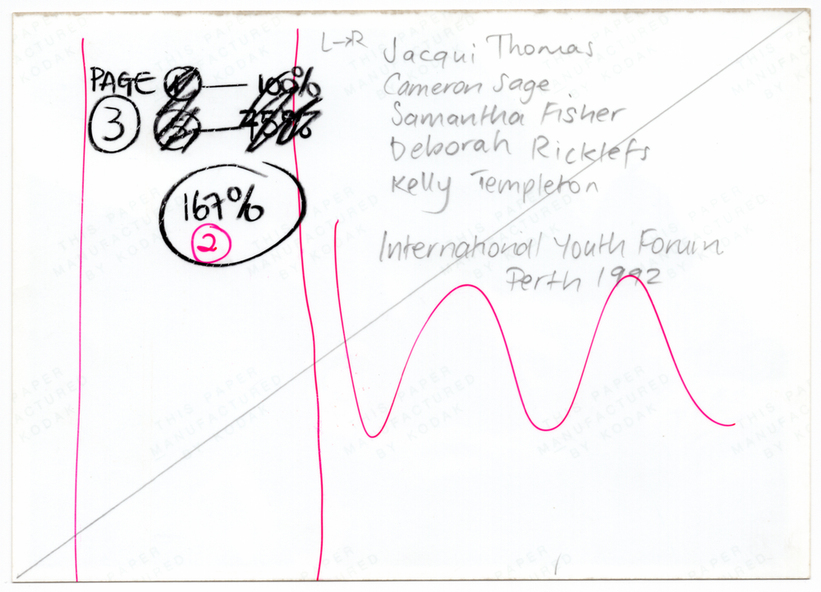 L→R
Jacqui Thomas
Cameron Sage
Samantha Fisher
Deborah Ricklefs
Kelly Templeton
International Youth Forum
Perth 1992
PAGE
100%
3
167%
2
THIS PAPER
MANUFACTURED
BY KODAK